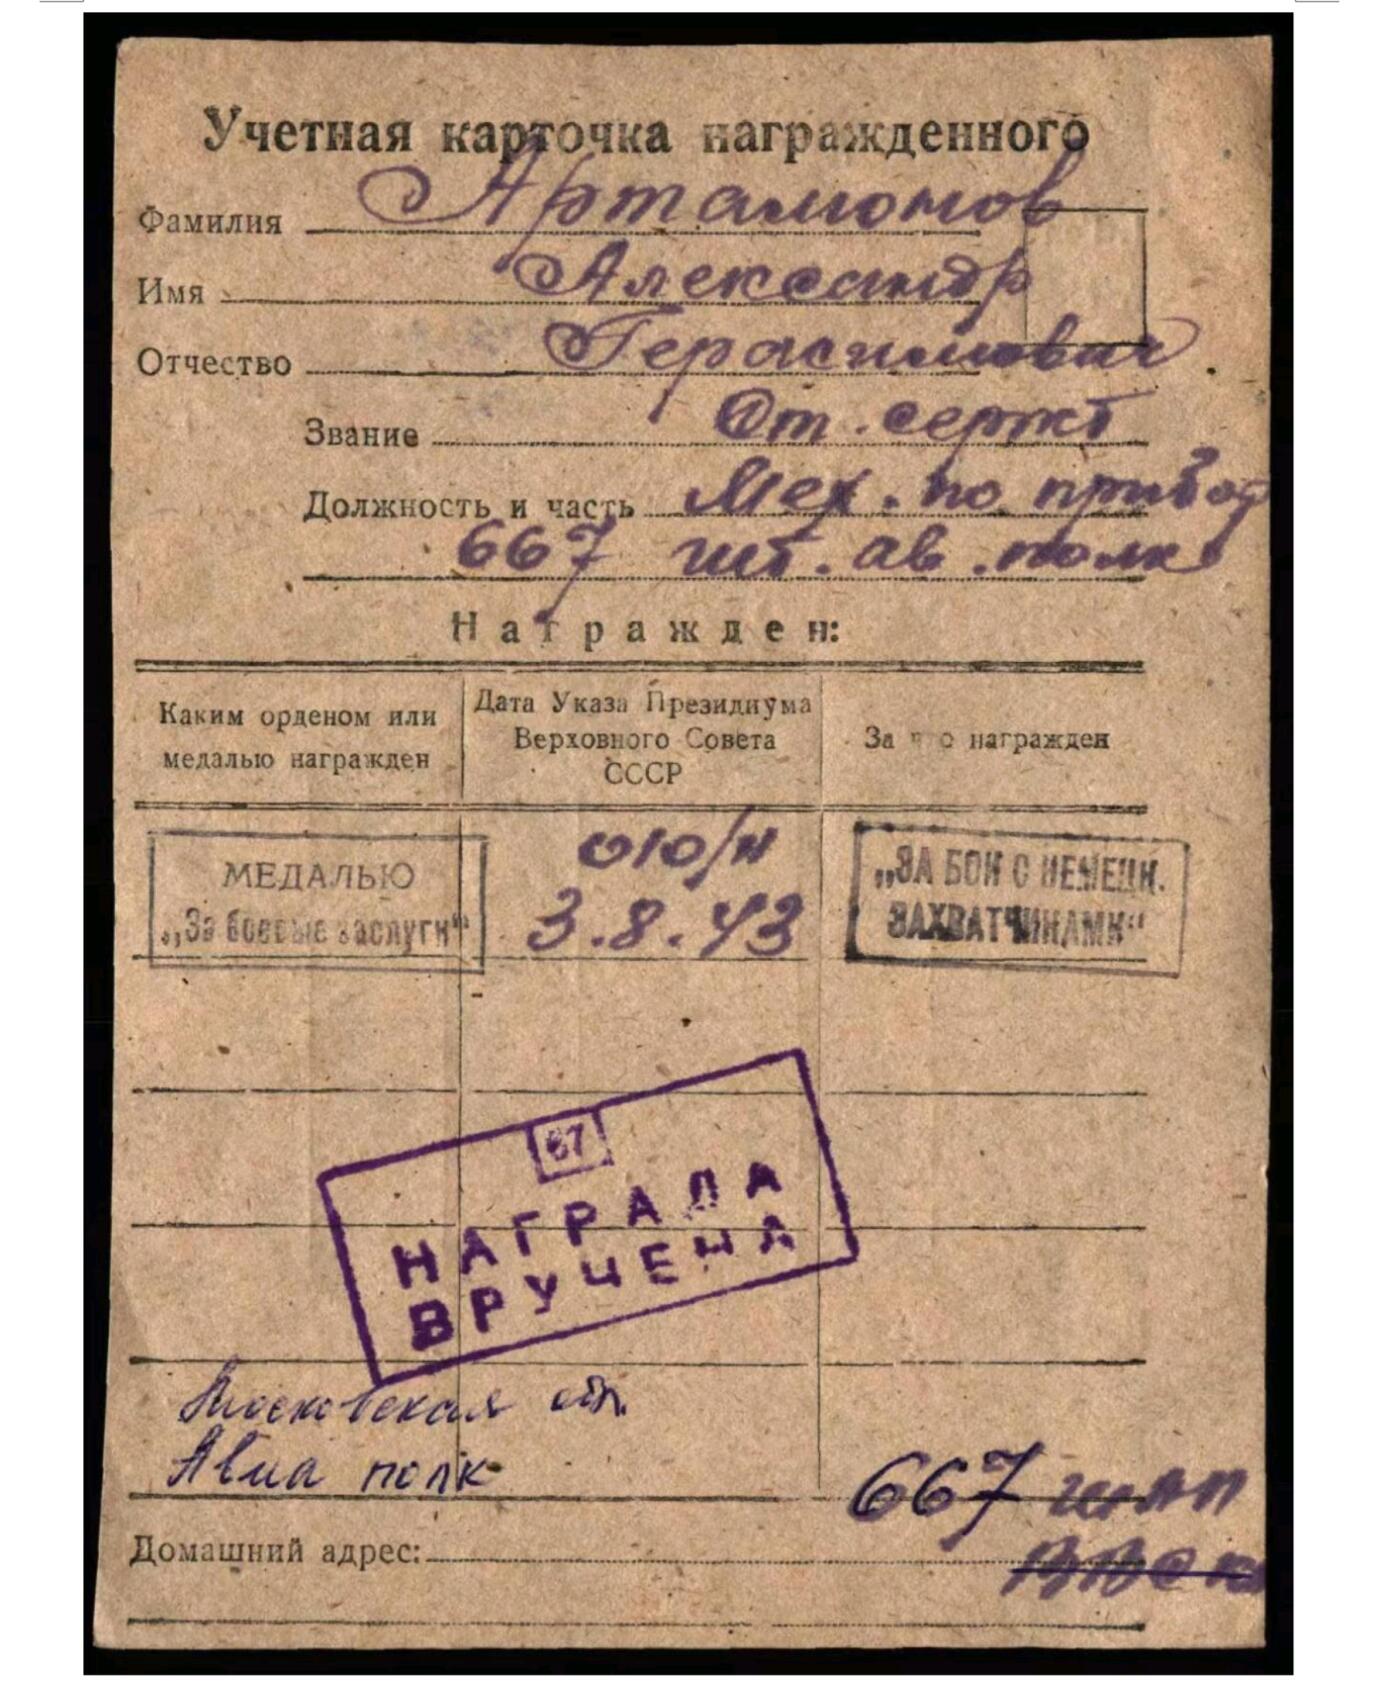 Учетная карточка награжденного
Фамилия Артамонов
Имя Александр
Отчество Герасимович
Звание Ст. сержт
Должность и часть Мех. по прибор
667 шт. ав. полк
Награжден:
Каким орденом или медалью награжден
Дата Указа Президиума Верховного Совета СССР
За что награжден
МЕДАЛЬЮ
„За боевые заслуги“
010/н
3.8.43
„ЗА БОИ С НЕМЕЦК.
ЗАХВАТЧИКАМИ“
67
НАГРАДА
ВРУЧЕНА
Московская обл.
Авиа полк
667 шАП
Домашний адрес: